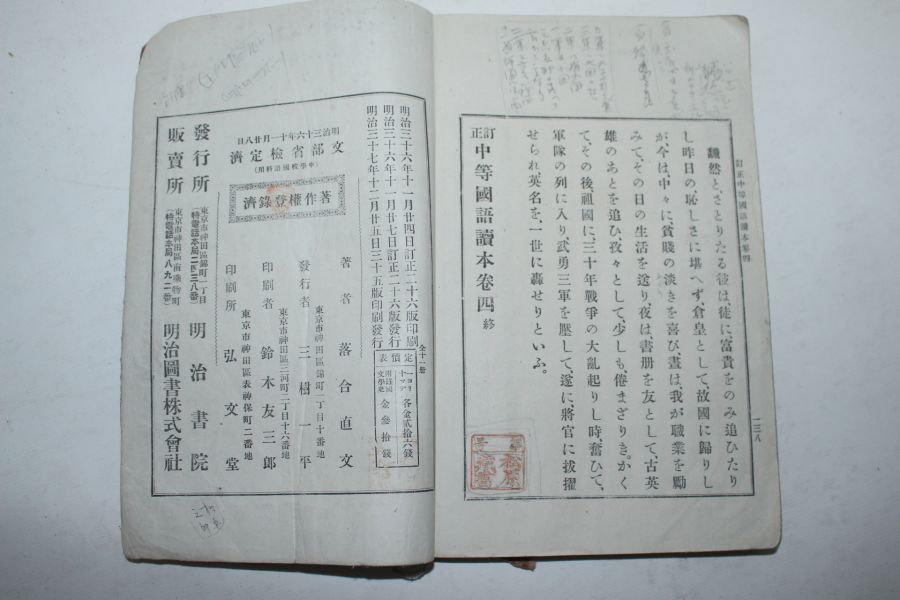 訂正中等國語讀本卷四
一三八
飜然と、さとりたる彼は、徒に、富貴をのみ追ひたり
し昨日の恥しさに堪へず、倉皇として、故國に歸りし
が、今は、中々に、貧賤の淡きを喜び、晝は、我が職業を勵
みて、その日の生活を送り、夜は、書册を友として、古英
雄のあとを追ひ、孜々として、少しも、倦まざりき。かく
て、その後、祖國に、三十年戰爭の大亂起りし時、奮ひて、
軍隊の列に入り、武勇三軍を壓して、遂に、將官に拔擢
せられ、英名を、一世に轟せりといふ。
訂正中等國語讀本卷四終
明治三十六年十一月廿四日訂正二十六版印刷
明治三十六年十一月廿七日訂正二十六版發行
明治三十七年十二月廿五日三十五版印刷發行
全十一册
定價表
各金貳拾六錢
金參拾錢
明治三十六年十一月廿八日
文部省檢定濟
(中學校國語科用)
著作權登錄濟
著者 落合直文
東京市神田區錦町一丁目十番地
發行者 三樹一平
東京市神田區三河町二丁目十六番地
印刷者 鈴木友三郎
東京市神田區表神保町二番地
印刷所 弘文堂
發行所
東京市神田區錦町一丁目
(特電話本局二四三八番)
明治書院
販賣所
東京市神田區南乘物町
(特電話本局八九二番)
明治圖書株式會社